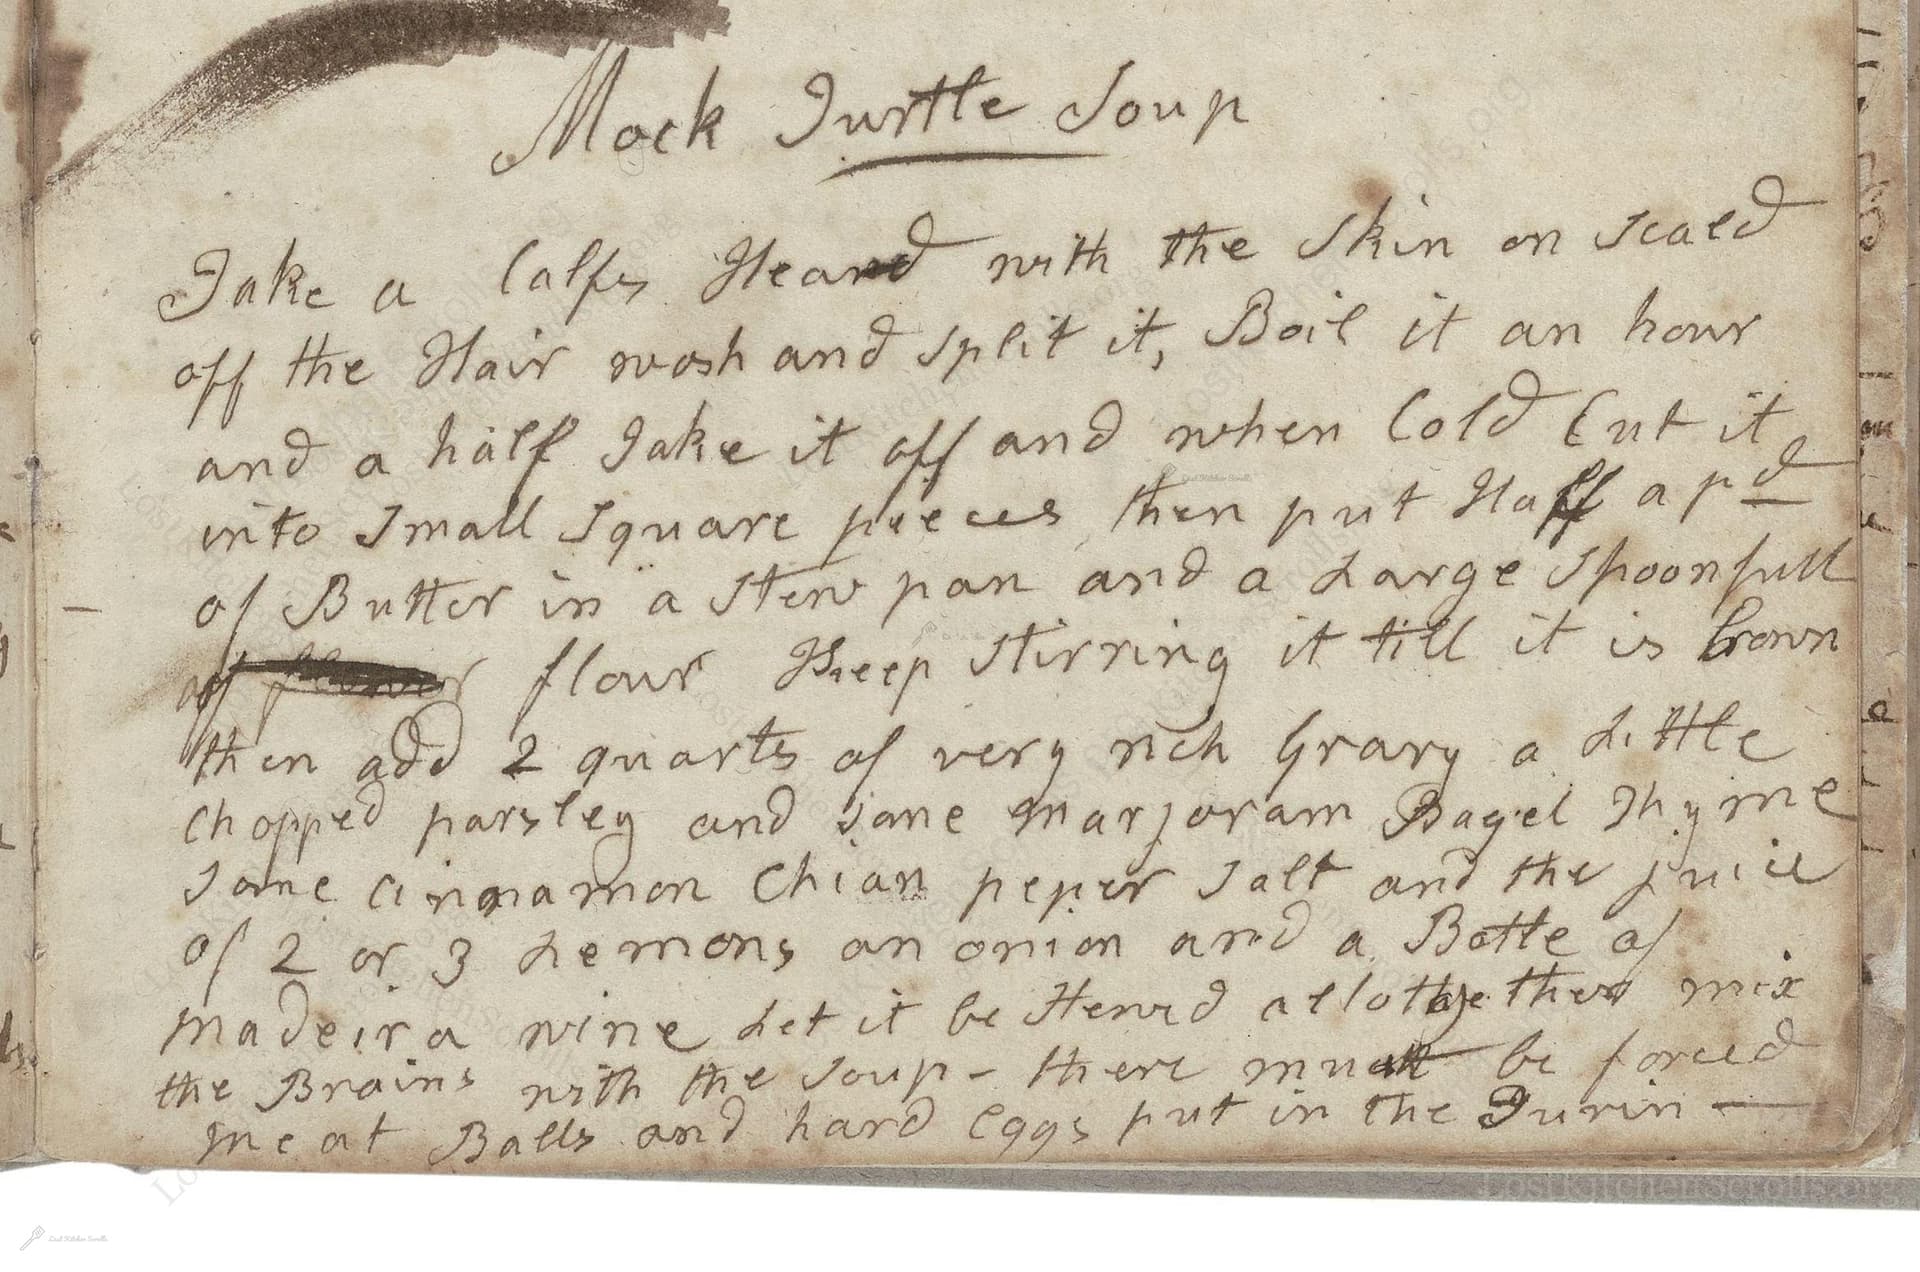 Mock Turtle Soup
Take a Calfs Head with the Skin on scald
off the Hair wash and split it, Boil it an hour
and a half Take it off and when Cold Cut it
into Small Square pieeces then put Haff a pd
of Butter in a Stew pan and a Large Spoonfull
of flour Keep stirring it till it is brown
then add 2 quarts of very rich Gravy a Little
Chopped parsley and some marjoram Bagel Thyme
some Cinnamon Chian peper Salt and the juice
of 2 or 3 Lemons an onion and a Bottle of
madeira wine Let it be Stewd altogether mix
the Brains with the Soup - there must be forced
meat Balls and hard Eggs put in the Turin —
LostKitchenScrolls.org
Lost Kitchen Scrolls